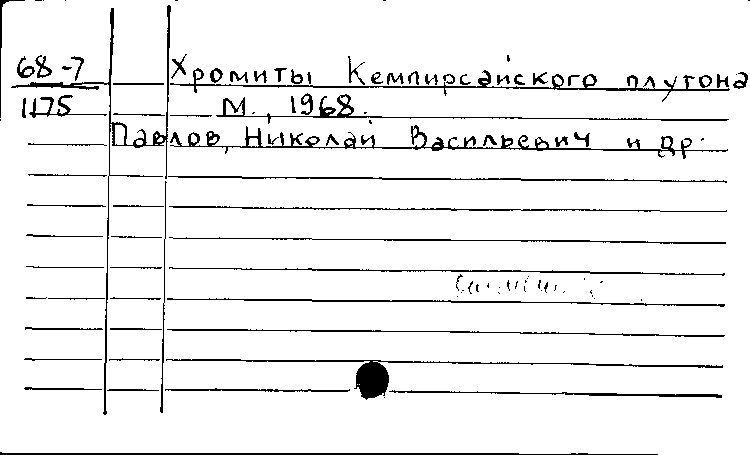 68-7 Хромиты Кемпирсайского плутона
1175 М., 1968.
Павлов, Николай Васильевич и др.